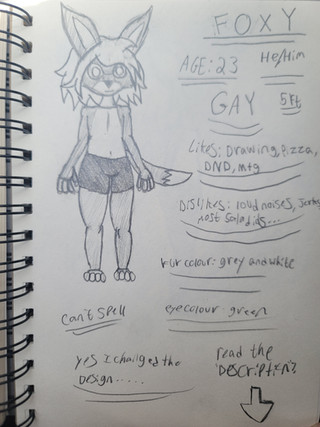 FOXY
AGE: 23
He/Him
GAY
5Ft
Likes: Drawing, Pizza,
DND, mtg
Dislikes: loud noises,
most salads...
Fur colour: grey and white
eye colour: green
can't spell
yes I changed the
Design.....
read the
DESCRIPTION?